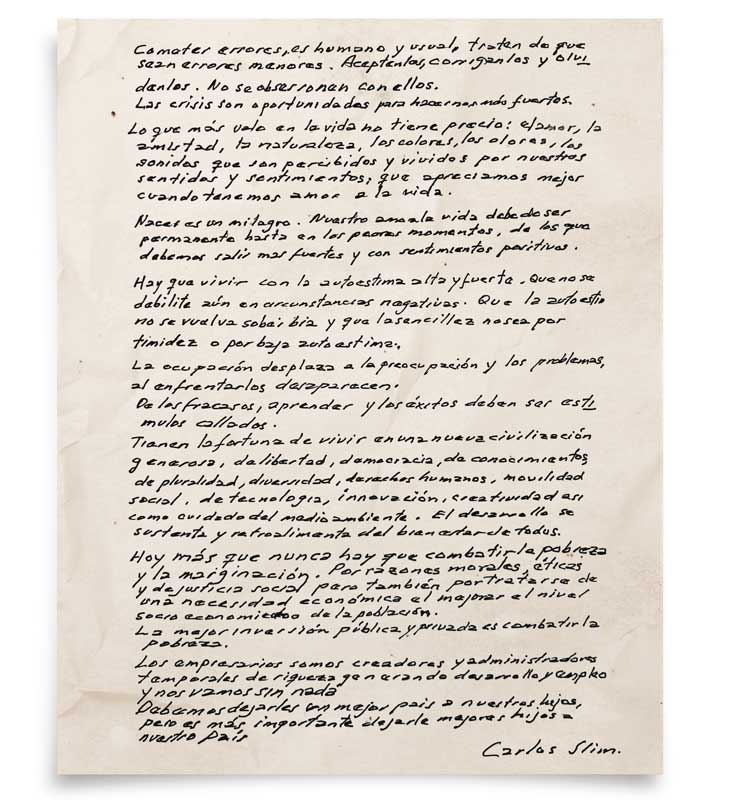 Cometer errores, es humano y usual, traten de que
sean errores menores. Aceptenlos, corriganlos y olvi
denlos. No se obsesionen con ellos.
Las crisis son oportunidades para hacernos más fuertes.
Lo que más vale en la vida no tiene precio: el amor, la
amistad, la naturaleza, los colores, los olores, los
sonidos que son percibidos y vividos por nuestros
sentidos y sentimientos; que apreciamos mejor
cuando tenemos amor a la vida.
Nacer es un milagro. Nuestro amor a la vida debe de ser
permanente hasta en los peores momentos, de los que
debemos salir mas fuertes y con sentimientos positivos.
Hay que vivir con la autoestima alta y fuerte. Que no se
debilite aún en circunstancias negativas. Que la autoestim
no se vuelva soberbia y que la sencillez no sea por
timidez o por baja autoestima.
La ocupación desplaza a la preocupación y los problemas,
al enfrentarlos desaparecen.
De los fracasos, aprender y los éxitos deben ser estí
mulos callados.
Tienen la fortuna de vivir en una nueva civilización
generosa, de libertad, democracia, de conocimientos,
de pluralidad, diversidad, derechos humanos, movilidad
social, de tecnologia, innovación, creatividad asi
como cuidado del medio ambiente. El desarrollo se
sustenta y retroalimenta del bienestar de todos.
Hoy más que nunca hay que combatir la pobreza
y la marginación. Por razones morales, éticas
y de justicia social pero también por tratarse de
una necesidad económica el mejorar el nivel
socio economico de la población.
La mejor inversión pública y privada es combatir la
pobreza.
Los empresarios somos creadores y administradores
temporales de riqueza generando desarrollo y empleo
y nos vamos sin nada
Debemos dejarles un mejor pais a nuestros hijos,
pero es más importante dejarle mejores hijos a
nuestro País
Carlos Slim.